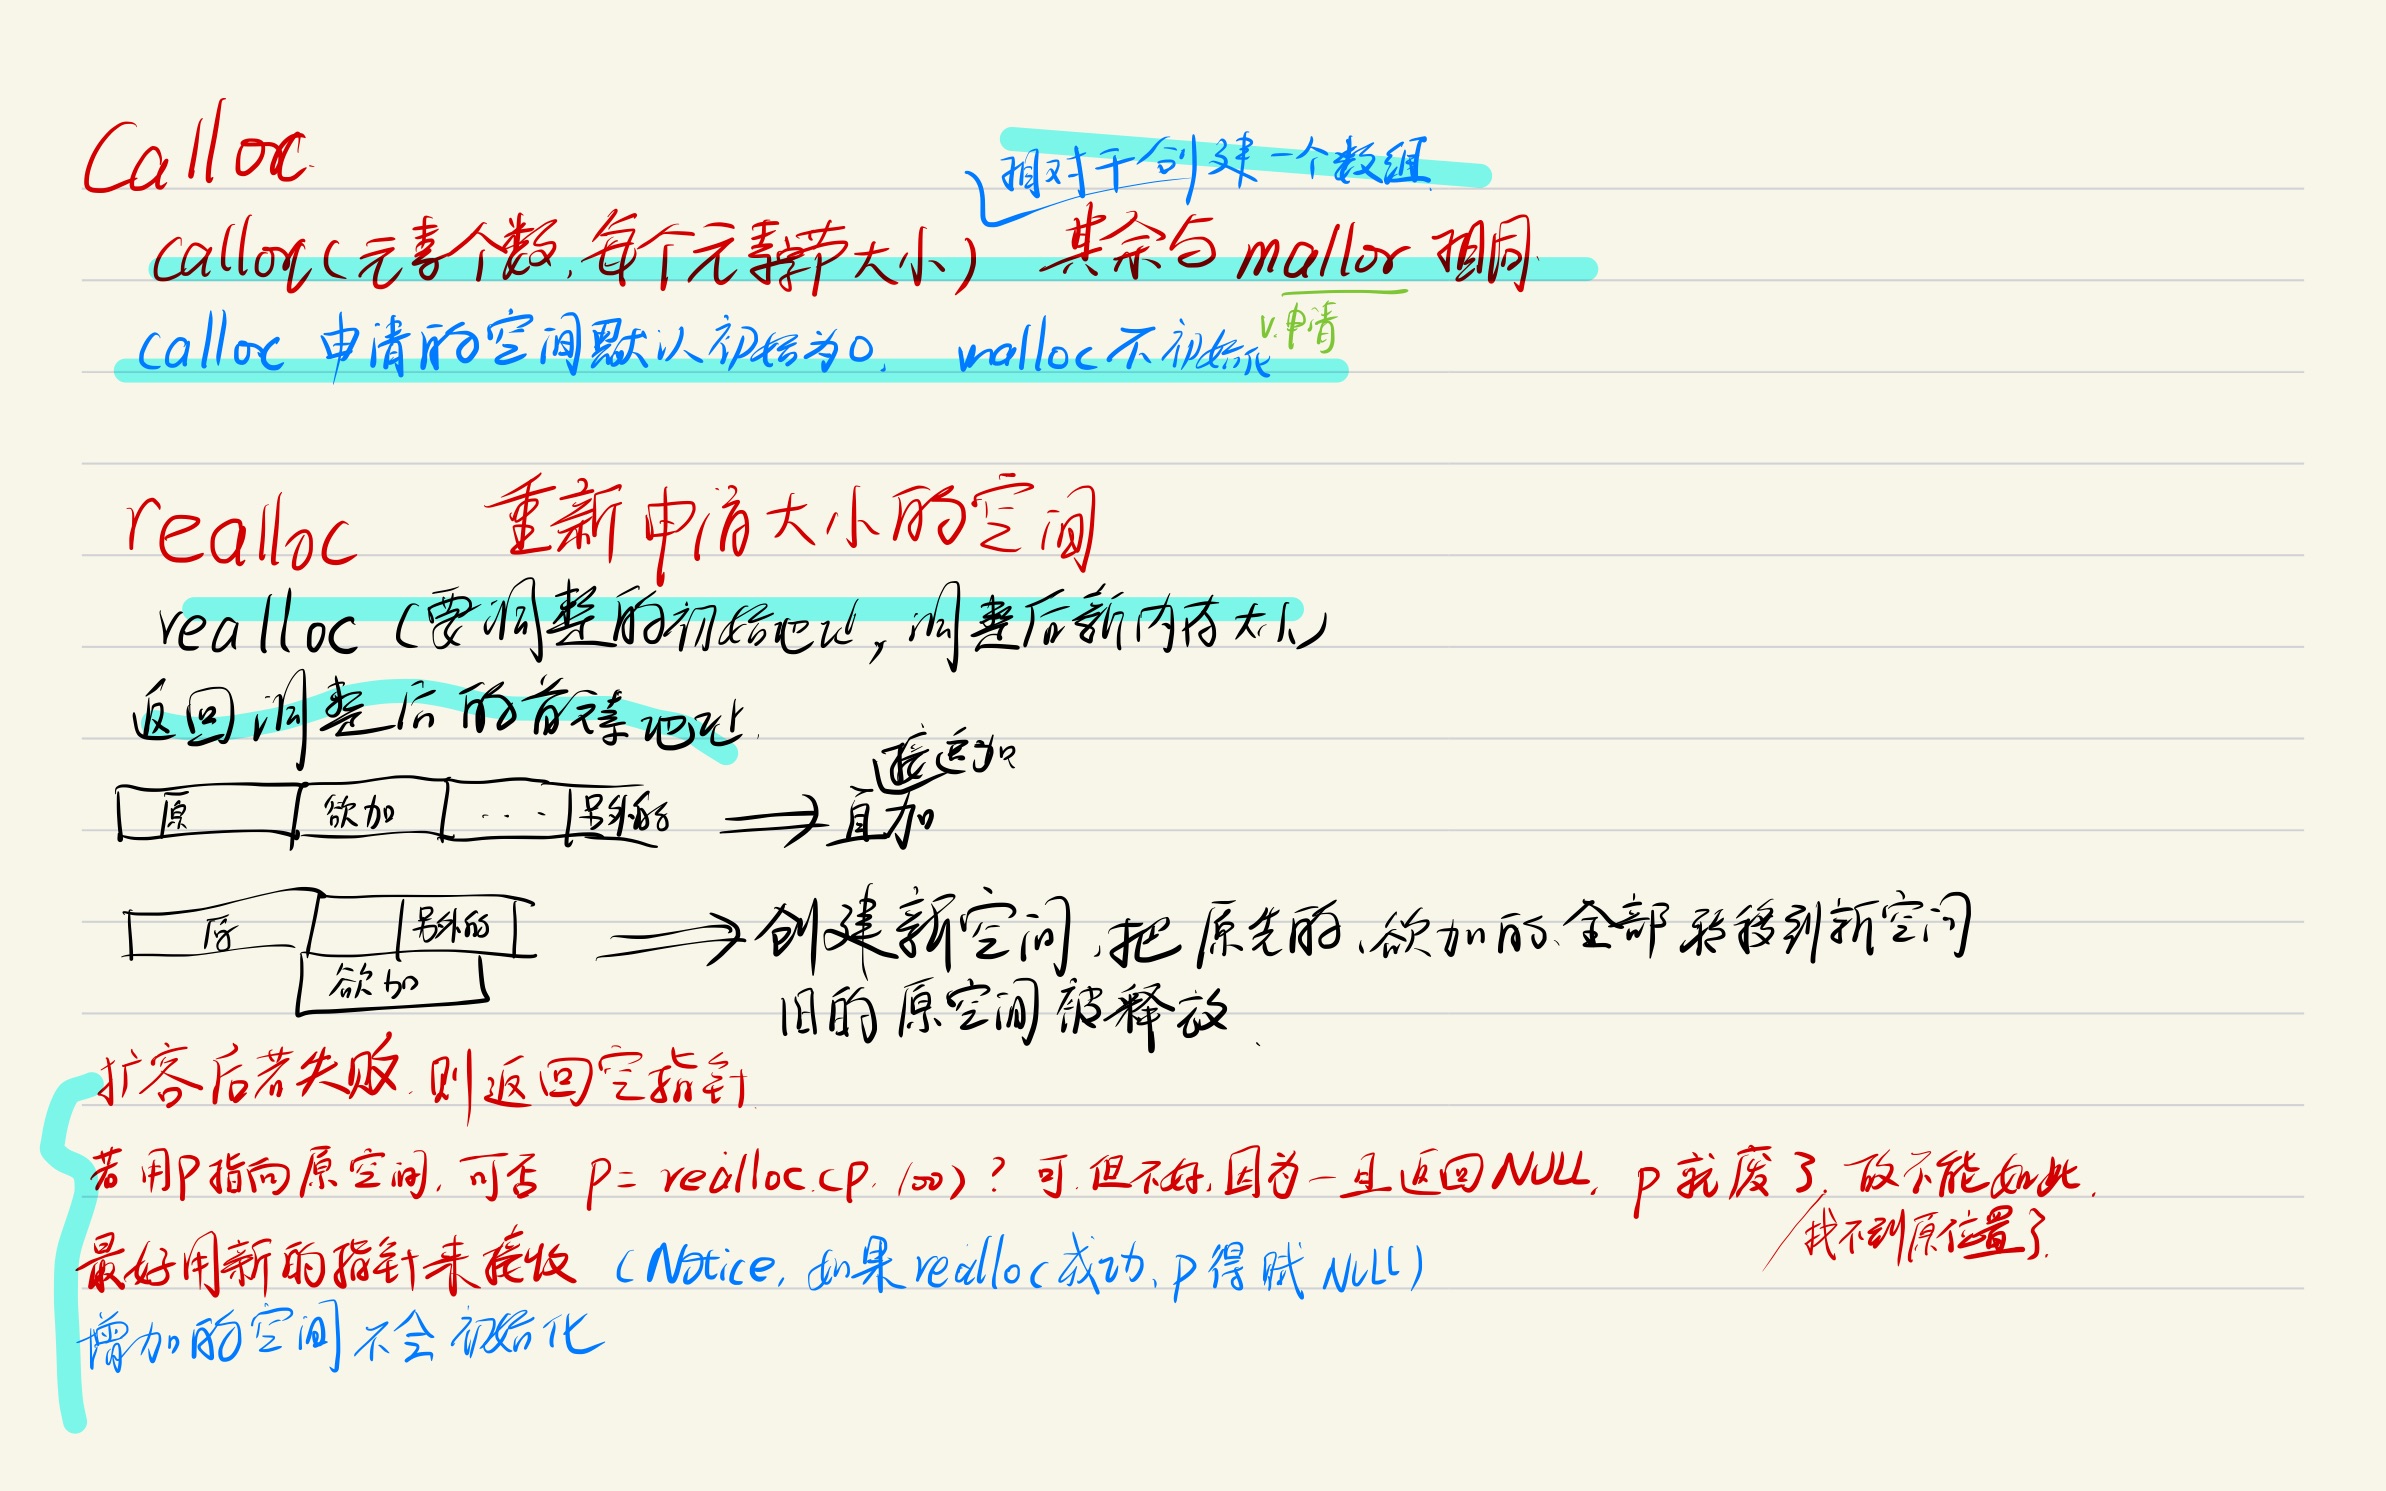 Calloc
相对于创建一个数组
calloc(元素个数,每个元素字节大小) 其余与 mallor 相同.
v.申请
calloc 申请的空间默认初始为0. malloc不初始化
realloc 重新申请大小的空间
realloc (要调整的初始地址, 调整后新内存大小)
返回调整后的首元素地址.
接近加
原 欲加 ... 另外的 => 直加
原 另外的 => 创建新空间,把原先的、欲加的、全部转移到新空间
欲加
旧的原空间被释放.
扩容后若失败,则返回空指针.
若用P指向原空间,可否 p= realloc(p,100)? 可.但不好,因为一旦返回NULL, p就废了.故不能如此.
找不到原位置了.
最好用新的指针来接收 (Notice, 如果realloc成功、p得赋NULL)
增加的空间不会初始化